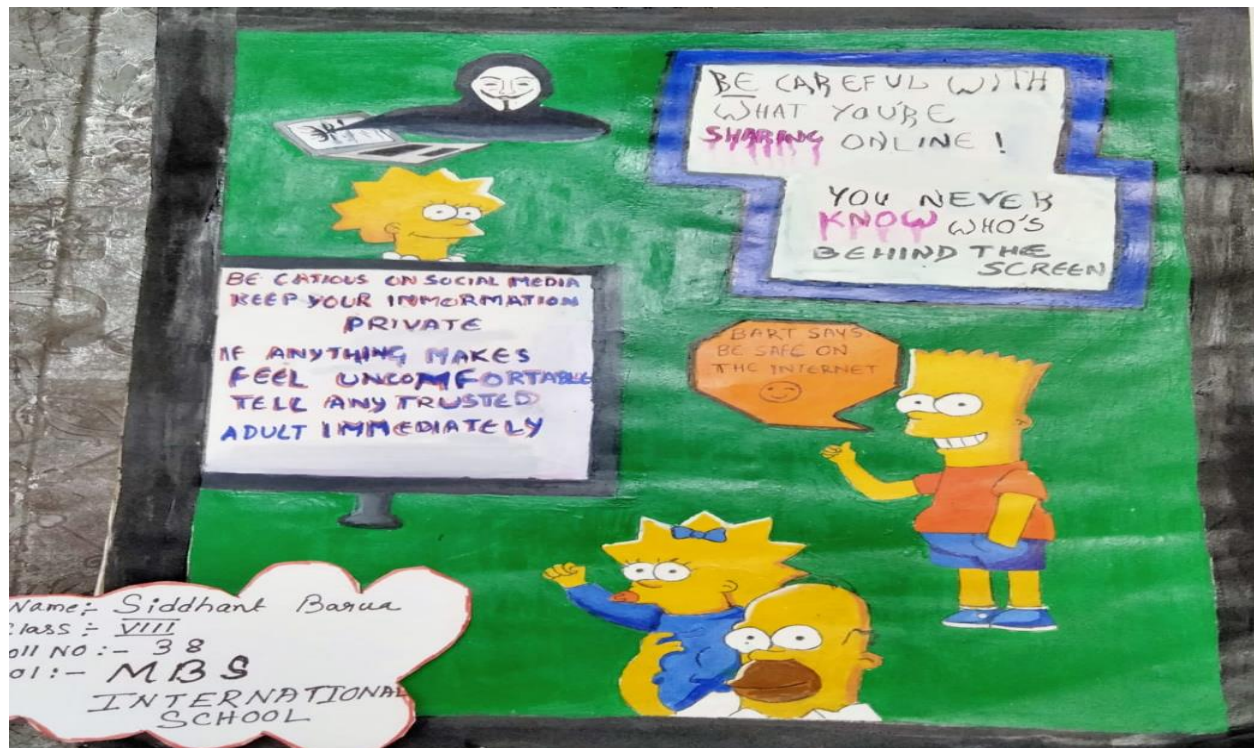 BE CAREFUL WITH
WHAT YOU'RE
SHARING ONLINE!
YOU NEVER
KNOW WHO'S
BEHIND THE
SCREEN
BE CATIOUS ON SOCIAL MEDIA
KEEP YOUR INMORMATION
PRIVATE
IF ANYTHING MAKES
FEEL UNCOMFORTABLE
TELL ANY TRUSTED
ADULT IMMEDIATELY
BART SAYS
BE SAFE ON
THE INTERNET
Name:- Siddhant Barua
Class:- VIII
oll NO:- 38
ol:- MBS
INTERNATIONAL
SCHOOL